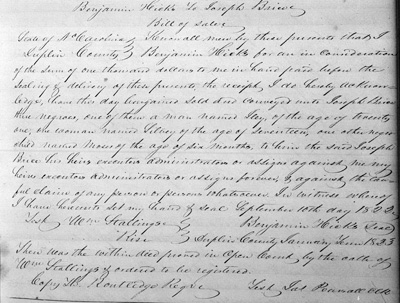 Benjamin Hicks To Joseph Brice
Bill of sale
State of No Carolina Know all men by these presents that I
Duplin County Benjamin Hicks for an in consideration
of the Sum of one thousand dollars to me in hand paid before the
Sealing & delivery of these presents, the receipt, I do hereby acknow-
ledge, have this day bargained Sold & conveyed unto Joseph Brice
three negroes, one of them a man named of the age of twenty
one, one woman named of the age of Seventeen, one other negro
child named Moses of the age of Six months, to him the said Joseph
Brice his heirs executors administrators or assigns against me my
heirs executors administrators or assigns forever, & against the law
ful claim of any person or persons whatsoever In witness whereof
I have hereunto Set my hand & Seal September 10th day 1822
Test Wm Stallings Benjamin Hicks Seal
Duplin County January Term 1823
Then was the within deed proved in Open Court by the oath of
Wm Stallings & ordered to be registered.
Copy Routledge Regr Test Jas Pearsall Clk